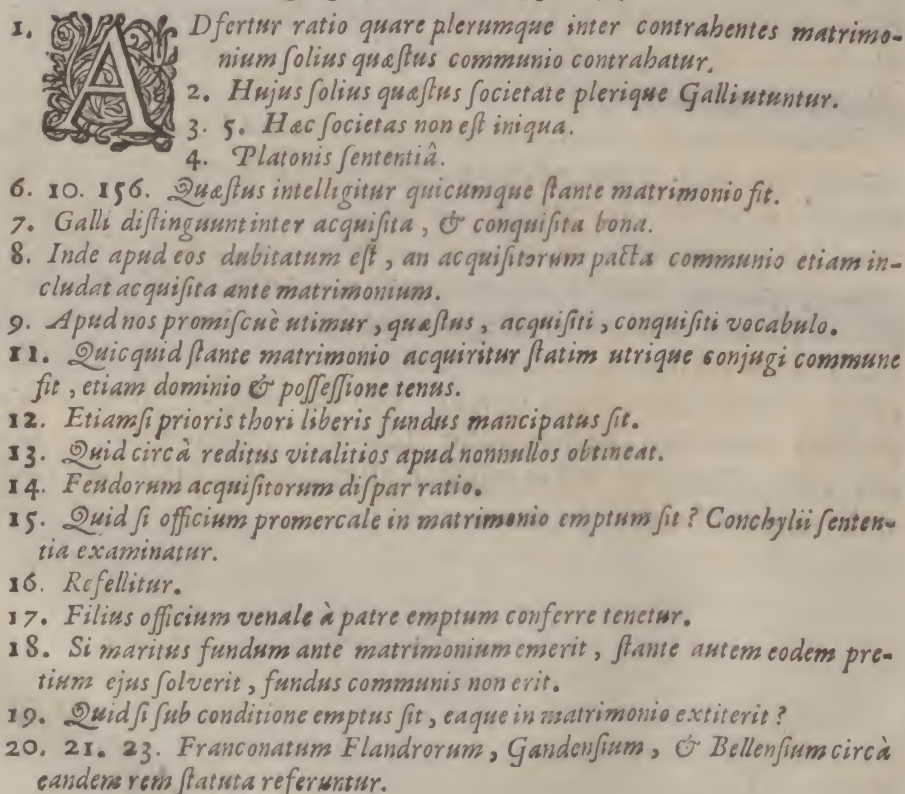 1. ADfertur ratio quare plerumque inter contrahentes matrimo-
nium ſolius quæſtus communio contrahatur.
2. Hujus ſolius quæſtus ſocietate plerique Galli utuntur.
3. 5. Hæc ſocietas non eſt iniqua.
4. Platonis ſententiâ.
6. 10. 156. Quæſtus intelligitur quicumque ſtante matrimonio fit.
7. Galli diſtinguunt inter acquiſita, & conquiſita bona.
8. Inde apud eos dubitatum eſt, an acquiſitorum pacta communio etiam in-
cludat acquiſita ante matrimonium.
9. Apud nos promiſcuè utimur, quæſtus, acquiſiti, conquiſiti vocabulo.
11. Quicquid ſtante matrimonio acquiritur ſtatim utrique conjugi commune
fit, etiam dominio & poſſeſſione tenus.
12. Etiamſi prioris thori liberis fundus mancipatus ſit.
13. Quid circà reditus vitalitios apud nonnullos obtineat.
14. Feudorum acquiſitorum diſpar ratio.
15. Quid ſi officium promercale in matrimonio emptum ſit? Conchylii ſenten-
tia examinatur.
16. Refellitur.
17. Filius officium venale à patre emptum conferre tenetur.
18. Si maritus fundum ante matrimonium emerit, ſtante autem eodem pre-
tium ejus ſolverit, fundus communis non erit.
19. Quid ſi ſub conditione emptus ſit, eaque in matrimonio extiterit?
20. 21. 23. Franconatum Flandrorum, Gandenſium, & Bellenſium circà
eandem rem ſtatuta referuntur.